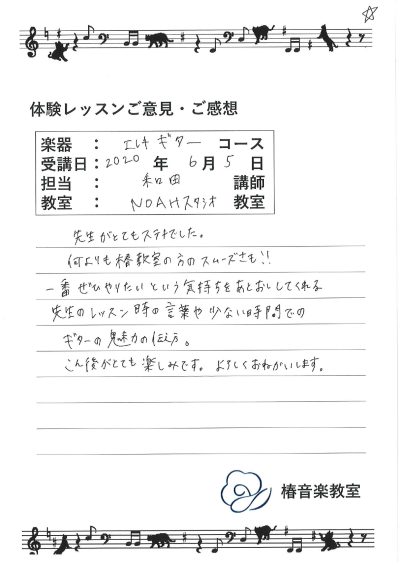 体験レッスンご意見・ご感想
楽器 : エレキギター コース
受講日 : 2020 年 6 月 5 日
担当 : 和田 講師
教室 : NOAHスタジオ 教室
先生がとてもステキでした。
何よりも椿教室の方のスムーズさも!!
一番ぜひやりたいという気持ちをあとおししてくれる
先生のレッスン時の言葉や少ない時間での
ギターの魅力の伝え方。
こん後がとても楽しみです。よろしくおねがいします。
椿音楽教室